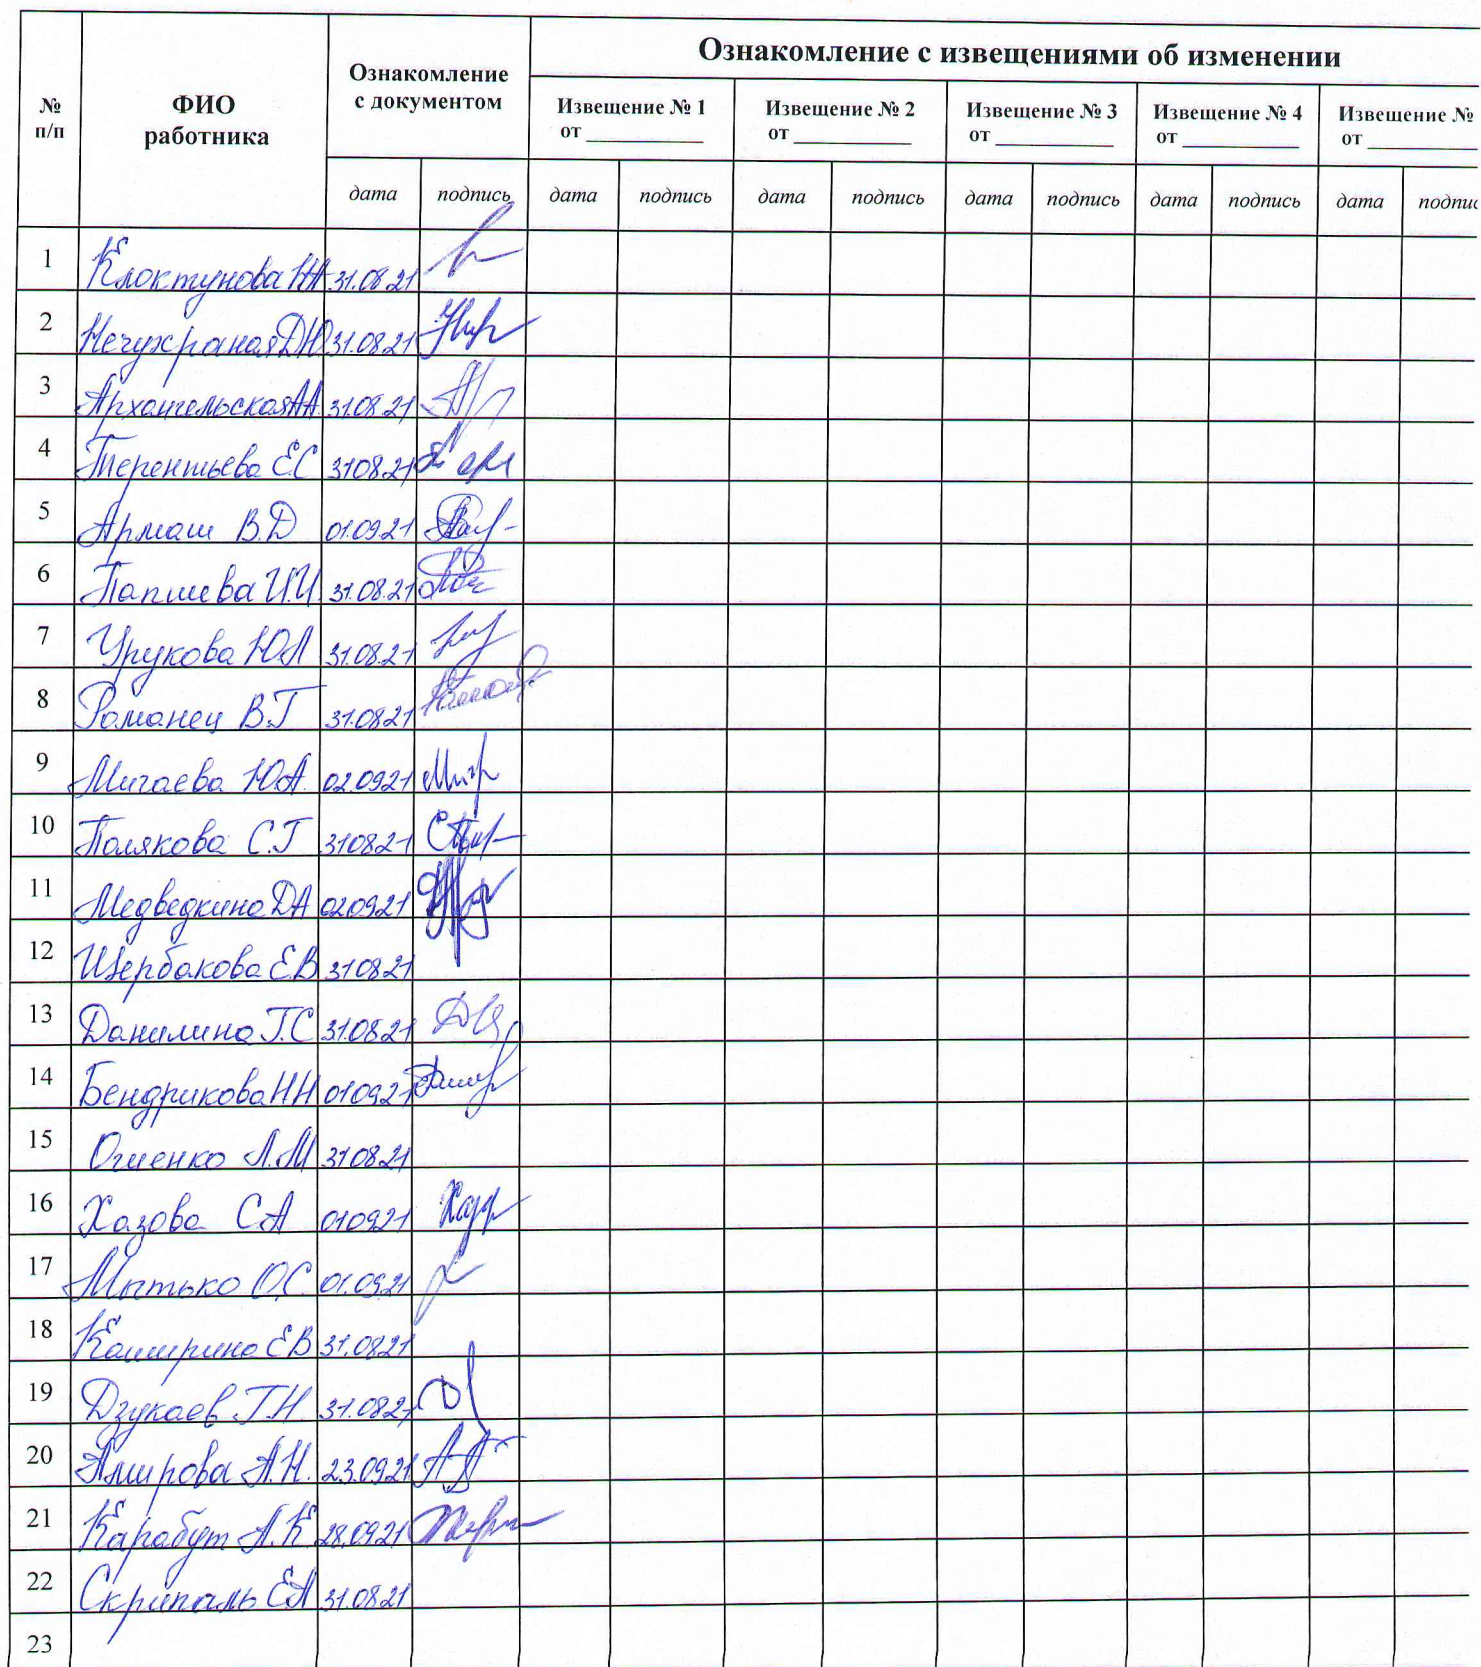 № п/п
ФИО работника
Ознакомление с документом
Ознакомление с извещениями об изменении
Извещение № 1 от ____________
Извещение № 2 от ____________
Извещение № 3 от ____________
Извещение № 4 от ____________
Извещение № от ____________
дата подпись дата подпись дата подпись дата подпись дата подпись дата
1 Клоктунова 31.08.21
2 31.08.21
3 Архангельская АА 31.08.21
4 Терентьева Е.С 31.08.21
5 Армаш В.Д 01.09.21
6 Папшева И.И. 31.08.21
7 Урукова Ю.А 31.08.21
8 Романец В.Г 31.08.21
9 Мигаева Ю.А. 02.09.21
10 Полякова С.Г 31.08.21
11 Медведкина ДА 02.09.21
12 Щербакова Е.В 31.08.21
13 Данилина Г.С 31.08.21
14 Бендрикова НН 01.09.21
15 Огиенко Л.М 31.08.21
16 Хазова С.А 01.09.21
17 Мытько О.С. 01.09.21
18 Каширина Е.В 31.08.21
19 Дзукаев Г.Н 31.08.21
20 Амирова А.Н. 23.09.21
21 Карабут А.К 28.09.21
22 Скрипаль ЕА 31.08.21
23